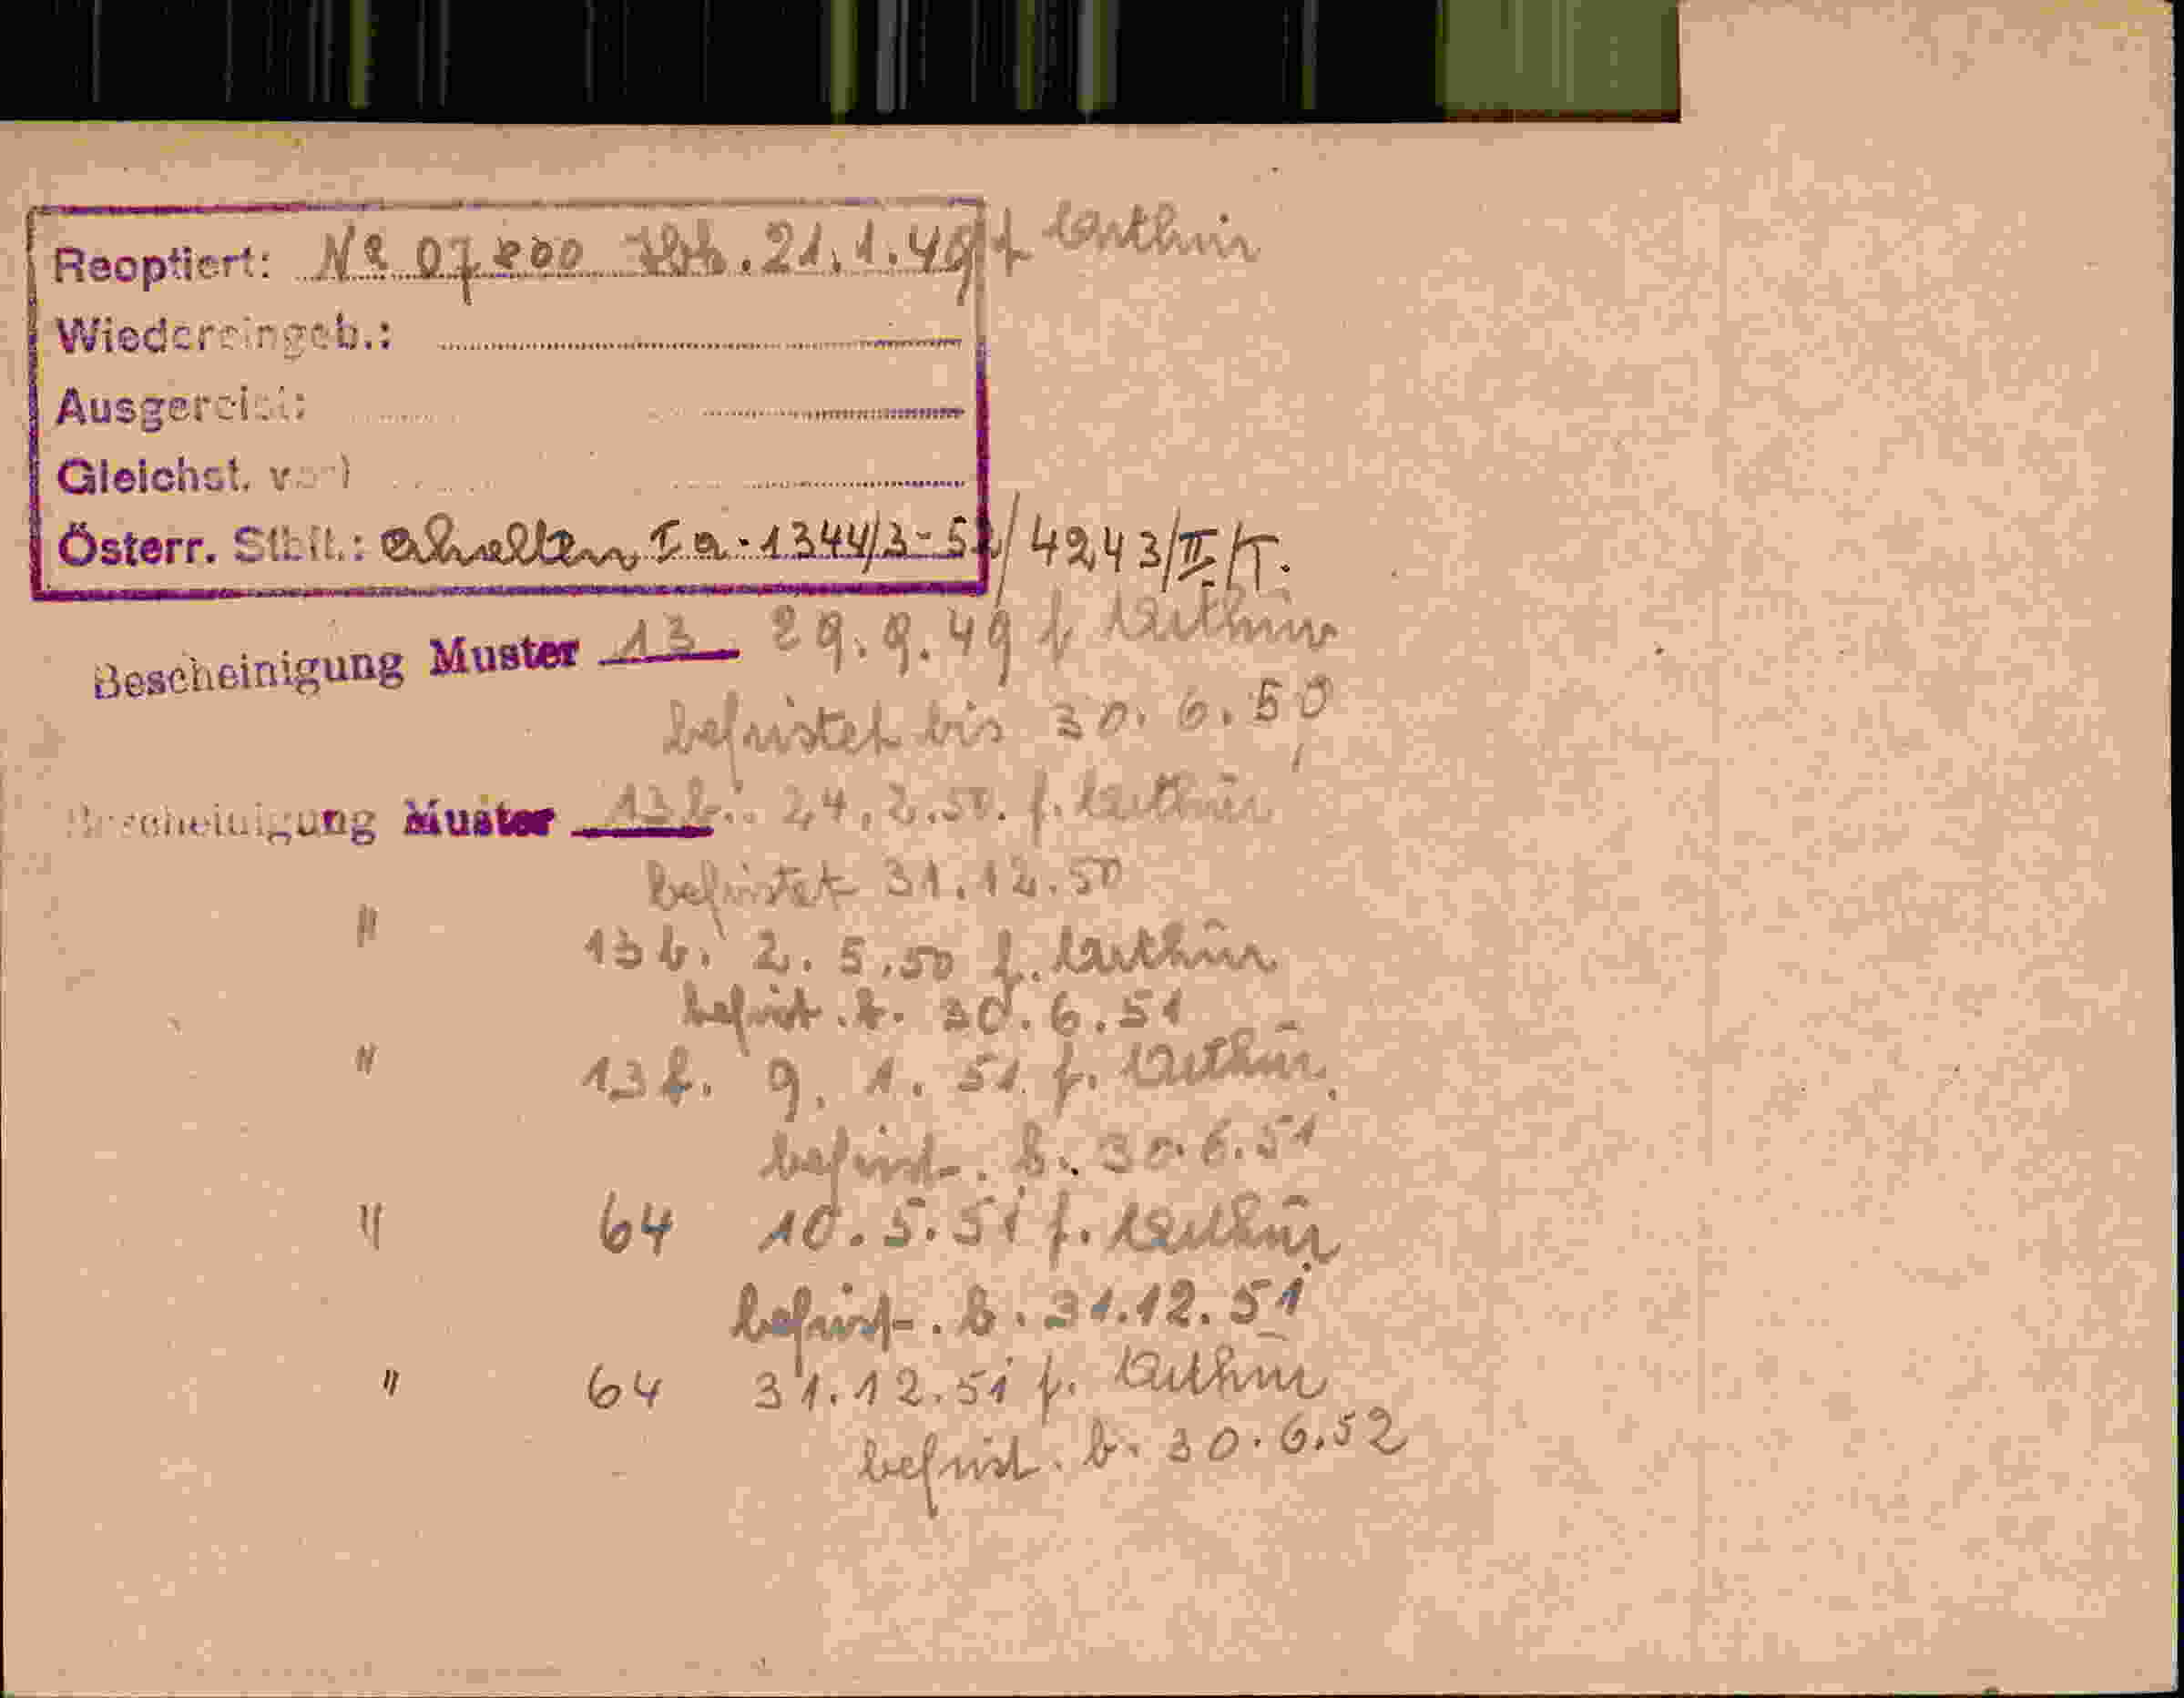 Reoptiert: No 07200 Ibk. 21.1.49 f Arthur
Wiedereingeb.:
Ausgereist:
Gleichst. vorl
Österr. Stbft.: erhalten Ia-1344/3-52/4243/II/T.
Bescheinigung Muster 13 29.9.49 f Arthur
befristet bis 30.6.50
Bescheinigung Muster 13b. 24.2.50. f. Arthur
befristet 31.12.50
" 13b. 2.5.50 f. Arthur
befrist. b. 30.6.51
" 13b. 9.1.51 f. Arthur
befrist. b. 30.6.51
" 64 10.5.51 f. Arthur
befrist. b. 31.12.51
" 64 31.12.51 f. Arthur
befrist. b. 30.6.52